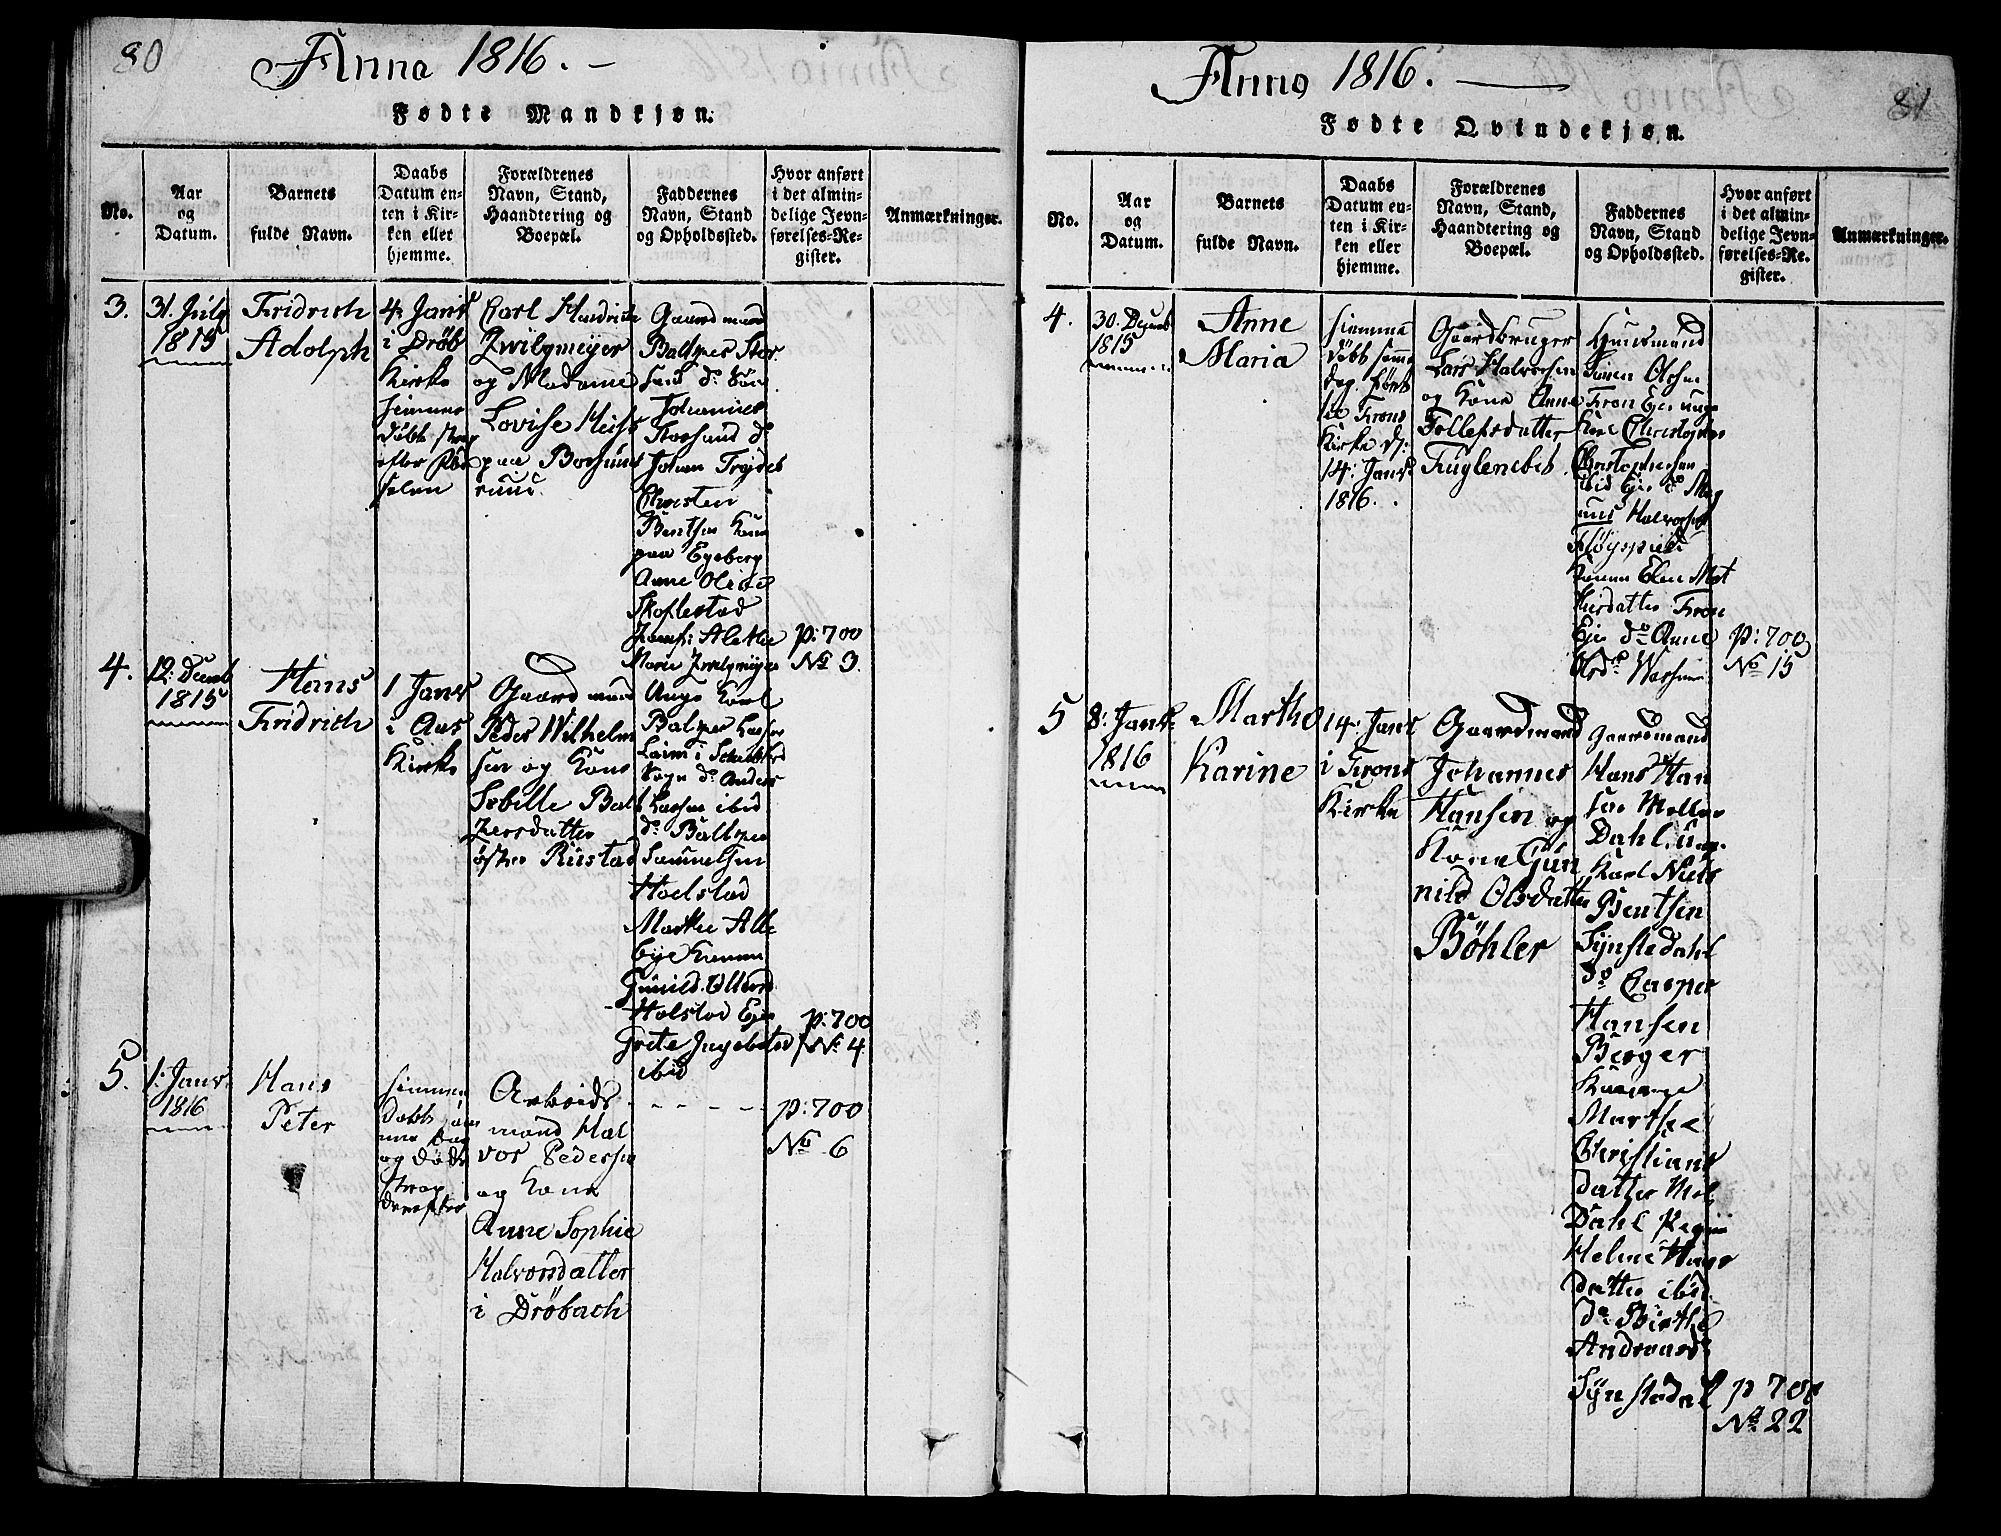 80
Anno 1816. –
Fødte Mandkjøn.
No.
Aar
og
Datum.
Barnets
fulde Navn.
Daabs
Datum en-
ten i Kir-
ken eller
hjemme.
Forældrenes
Navn, Stand,
Haandtering og
Boepæl.
Faddernes
Navn, Stand
og Opholdssted.
Hvor anført
i det almin-
delige Jevn-
førelses-Re-
gister.
Anmærkninger.
3.
31. July
1815
Fridrich
Adolph
4. Janr
i Drøb
Kirke
hiemme
døbt strax
efter Fød
selen
Carl
Zwilgmeyer
og Madame
Lovise
paa
Gaardmand
Baltzer Stor
sand do
Johannes
Storsand do
Johan
Christen
Bentsen
paa Egeberg
Anne Olise
Skoflestad
Jomfr: Alethe
Marie Zwilgmeyer
p: 700
No 3.
4.
12. Decemb
1815
Hans
Fridrich
1 Janr
i Aas
Kirke
Gaardmand
Peder Wilhelm
sen og Kone
Sebille Bal
zersdatter
østre Rustad
Unge Karl
Baltzer
i
Sogn do Anders
Larsen ibid
do Baltzer
Samuelsen
Holstad
Marthe All
bye
Gunild
Holstad Eje
Grete Ingebr
ibid
p: 700
No 4
5.
1. Janr.
1816
Hans
Peter
hiemme
døbt sam
me Dag
og døde
strax
derefter
Arbeids
mand Hal
vor Pedersen
og Kone
Anne Sophie
Halvorsdatter
i Drøbach
- - - - -
p: 700
No 6
81
Anno 1816. —
Fødte Qvindekjøn.
No.
Aar
og
Datum.
Barnets
fulde Navn.
Daabs
Datum en-
ten i Kir-
ken eller
hjemme.
Forældrenes
Navn, Stand,
Haandtering og
Boepæl.
Faddernes
Navn, Stand
og Opholdssted.
Hvor anført
i det almin-
delige Jevn-
førelses-Re-
gister.
Anmærkninger.
4.
30. Decemb
1815
Anne
Maria
hiemme
døbt samme
Dag
Frons
Kirke d:
14: Janr
1816.
Gaardbruger
Lars Halvorsen
og Kone Anne
Tollefsdatter
Fuglenebet
Huusmand
Olsen
Fron Eje unge
Karl Christopher
Christophersen
ibid Eje do Mag
nus Halvorsen
Konen Elen Mat
hisdatter Fron
Eje do Anne
p: 700
No 15
5
8: Janr.
1816
Marthe
Karine
14: Janr
i Frons
Kirke
Gaardmand
Johannes
Hansen og
Kone Gun
nild Olsdatter
Bøhler
Gaardmand
Hans Han
sen Mellom
Dahl. Ung
Karl Niels
Bentsen
Synstedahl
do Casper
Hansen
Berger
Marthe
Christians
datter Mel.
Dahl Pegiin
Helene Hans
datter ibid
do Birthe
Synstedal
p 700
No 22